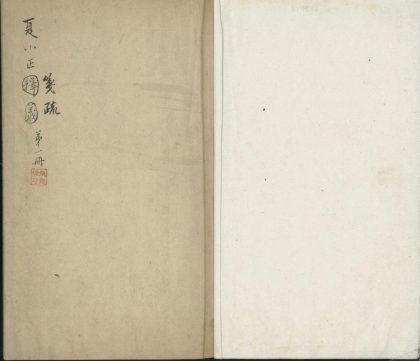 夏小正釋義
箋疏
第一冊